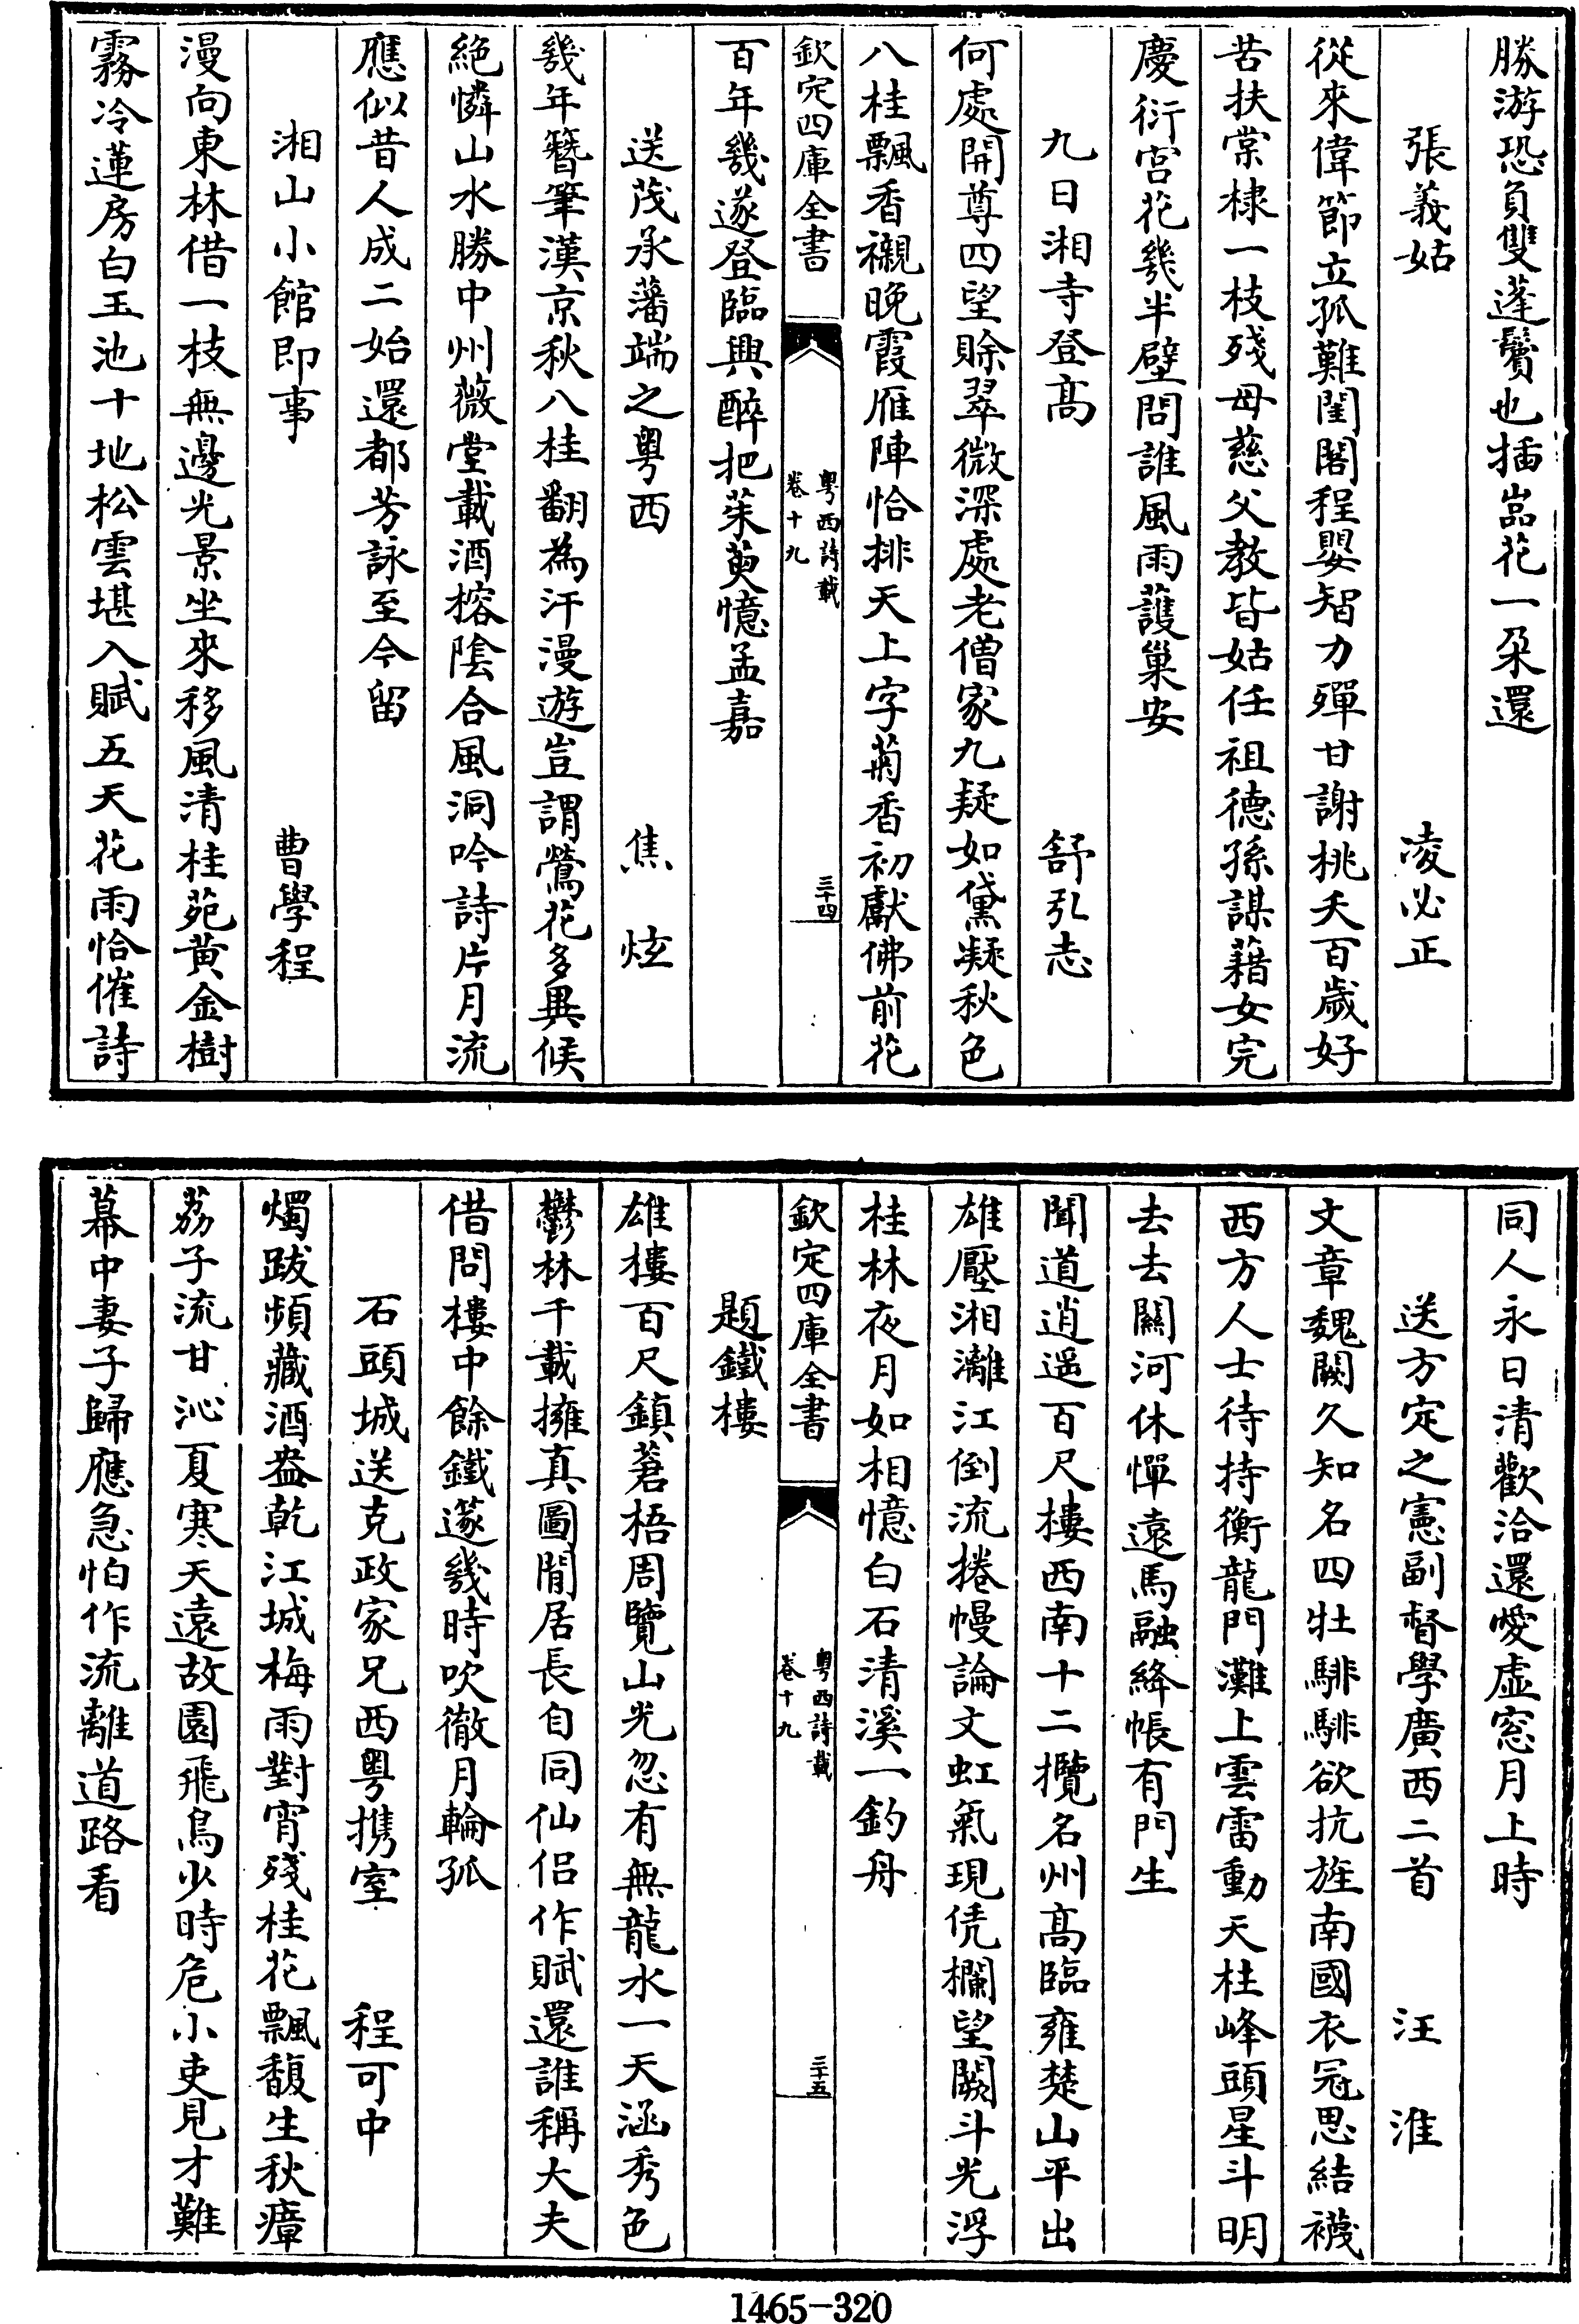 勝游恐負雙蓬鬢也插嵓花一朶還
張義姑　凌必正
從來偉節立孤難閨閣程嬰智力殫甘謝桃夭百歲好
苦扶棠棣一枝殘母慈父教皆姑任祖德孫謀藉女完
慶衍宫花幾半壁問誰風雨護巢安
九日湘寺登髙　舒弘志
何處開尊四望賒翠微深處老僧家九疑如黛凝秋色
八桂飄香襯晚霞雁陣恰排天上字菊香初獻佛前花
欽定四庫全書　粤西詩載　卷十九　三十四
百年幾遂登臨興醉把茱萸憶孟嘉
送茂承藩端之粤西　焦　炫
幾年簪筆漢京秋八桂翻為汗漫遊豈謂鶯花多異候
絶憐山水勝中州薇堂載酒榕陰合風洞吟詩片月流
應似昔人成二始還都芳詠至今留
湘山小館即事　曹學程
漫向東林借一枝無邊光景坐來移風清桂苑黄金樹
霧冷蓮房白玉池十地松雲堪入賦五天花雨恰催詩
同人永日清歡洽還愛虚窓月上時
送方定之憲副督學廣西二首　汪　淮
文章魏闕久知名四牡騑騑欲抗旌南國衣冠思結襪
西方人士待持衡龍門灘上雲雷動天柱峰頭星斗明
去去關河休憚遠馬融絳帳有門生
聞道逍遥百尺樓西南十二攬名州髙臨雍楚山平出
雄壓湘灕江倒流捲幔論文虹氣現凭欄望闕斗光浮
桂林夜月如相憶白石清溪一釣舟
欽定四庫全書　粤西詩載　卷十九　三十五
題鐵樓
雄樓百尺鎮蒼梧周覽山光忽有無龍水一天涵秀色
鬱林千載擁真圖閒居長自同仙侣作賦還誰稱大夫
借問樓中餘鐵邃幾時吹徹月輪孤
石頭城送克政家兄西粤携室　程可中
燭跋頻藏酒盎乾江城梅雨對宵殘桂花飄馥生秋瘴
荔子流甘沁夏寒天遠故園飛鳥少時危小吏見才難
幕中妻子歸應急怕作流離道路看
1465-320